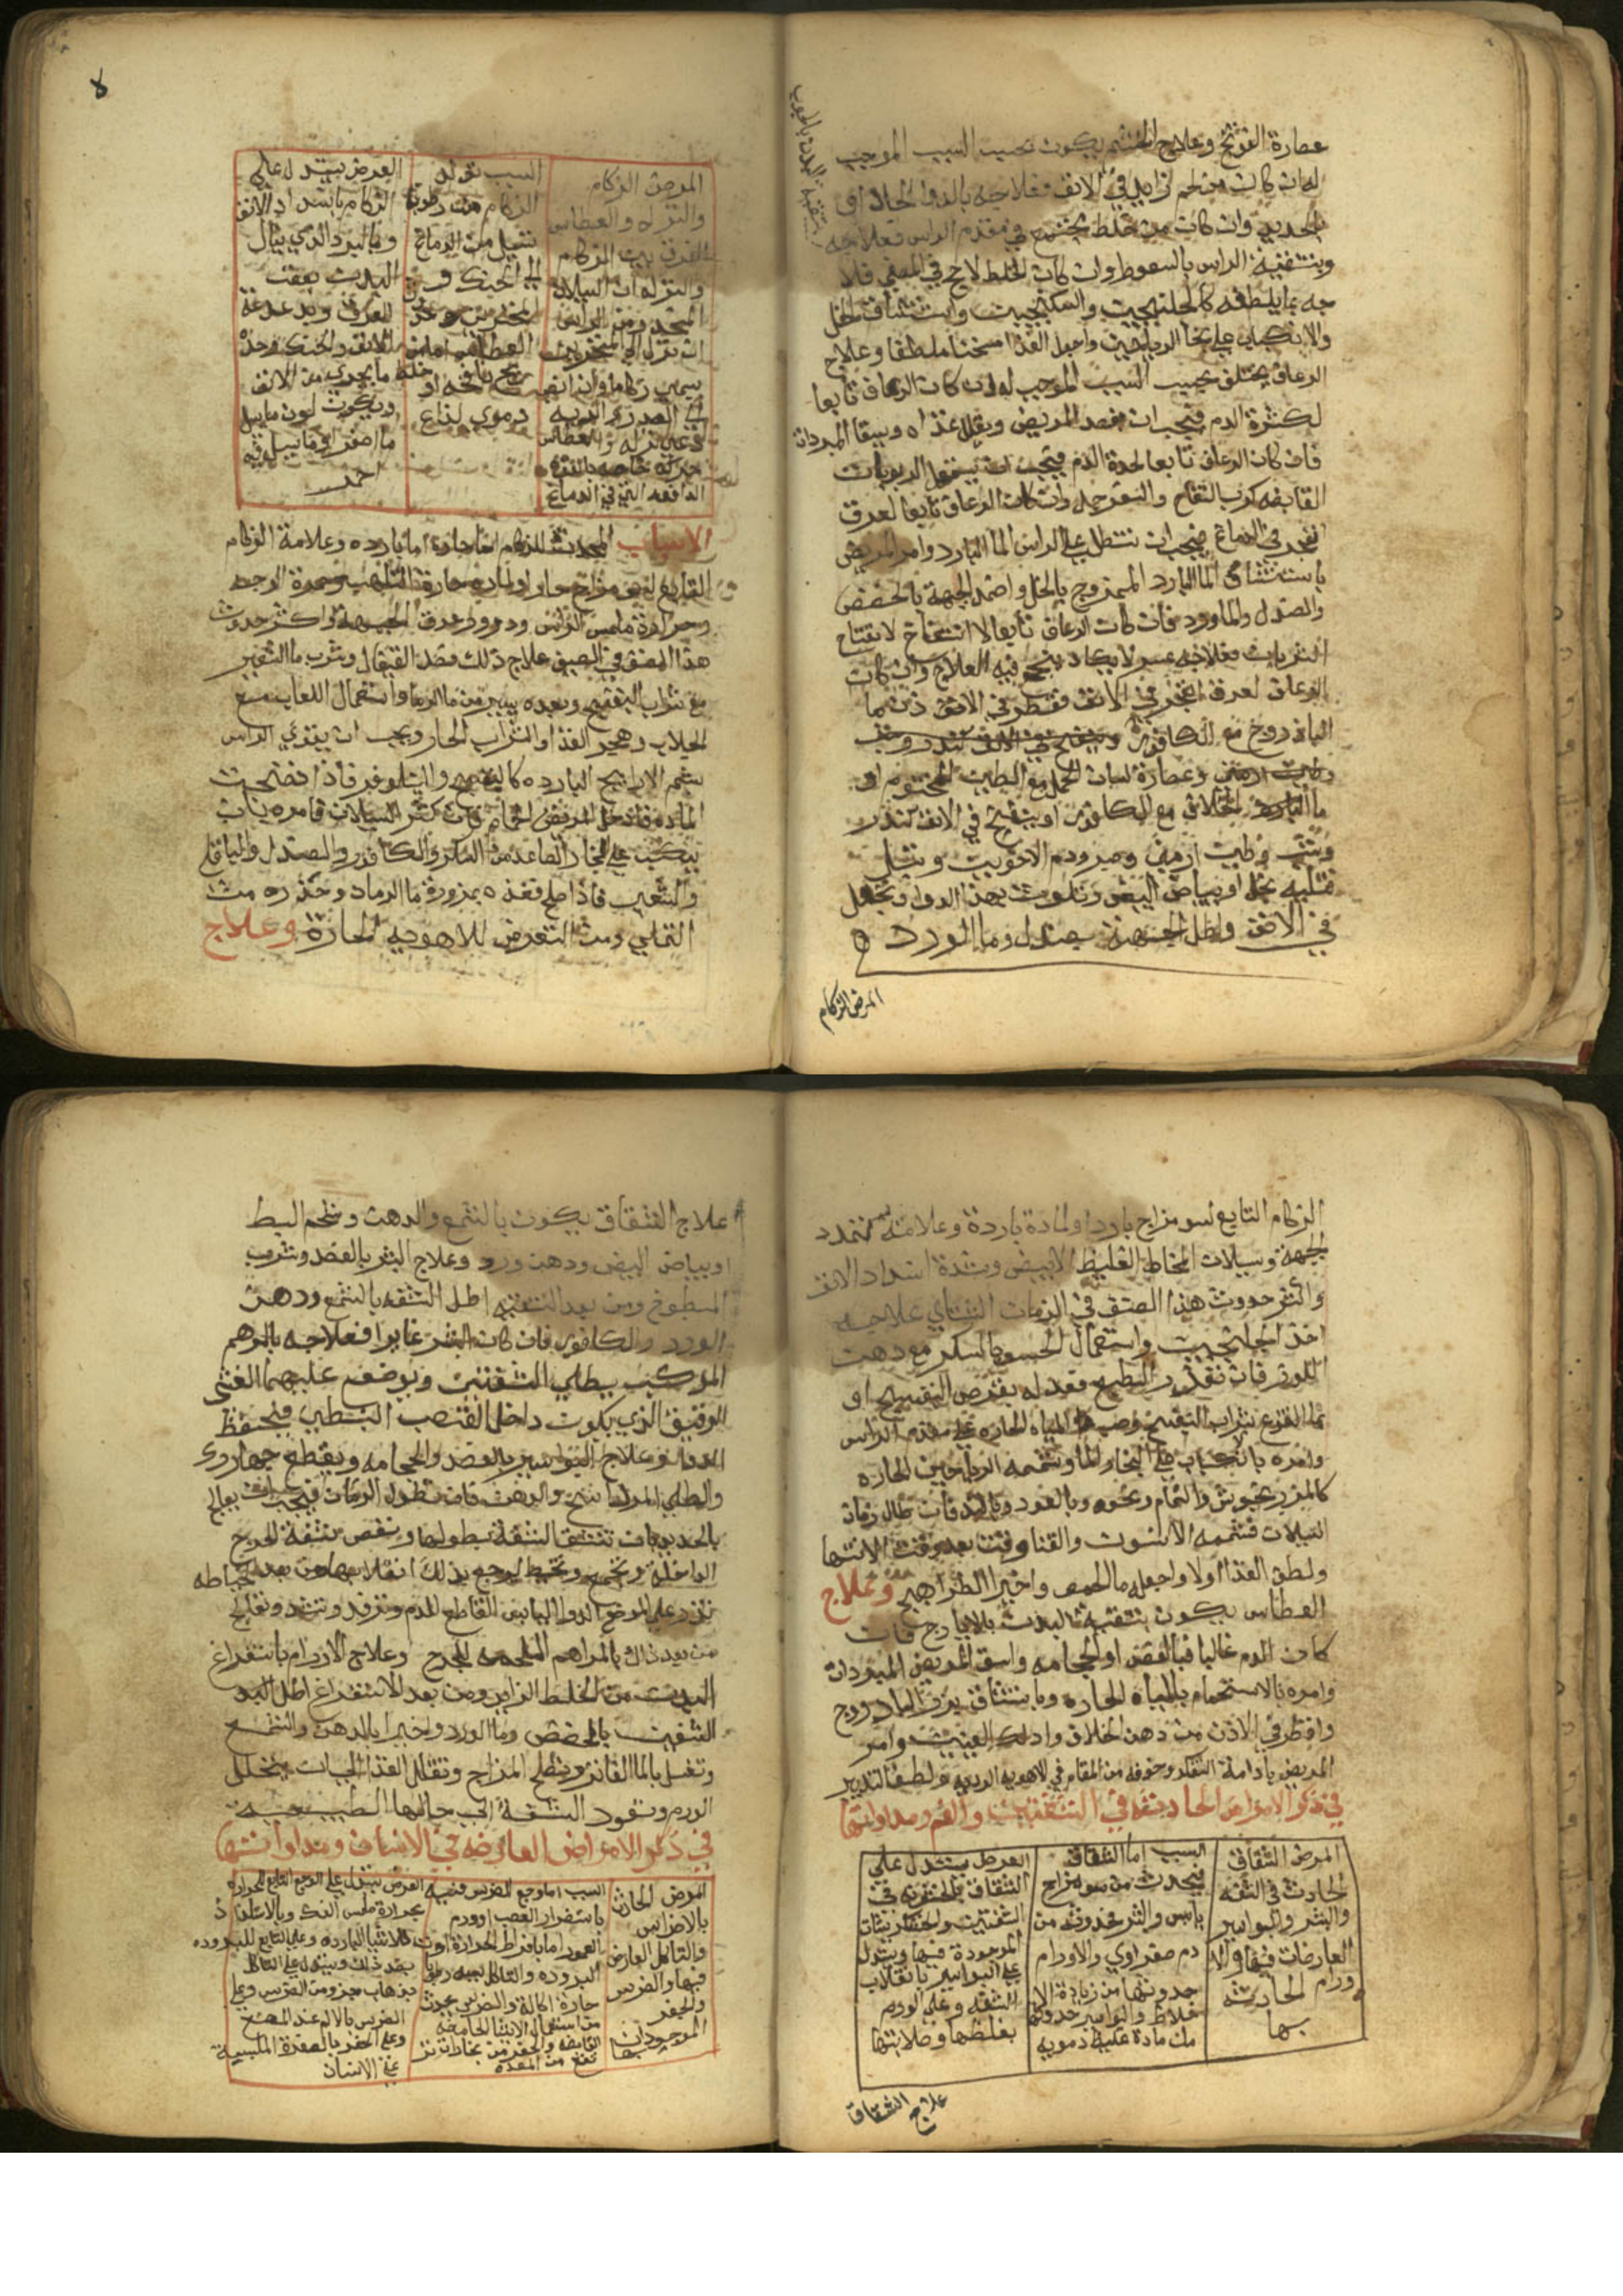 عصارة الفوتنج وعلاج الخشم يكون بحسب السبب الموجب
له ان كان من لحم زايد في الانف فعلاجه بالدوا الحاد او
الحديد وان كان من خلط مجتمع في مقدم الراس فعلاجه
وبتنقية الراس بالسعوط وان كان الخلط لاحج في المصفى
جه بما يلطفه كالجلنجبين والسكنجبين واستنشاق الخل
والانكباب على بخار الرياحين واجعل الغذا مسخنا ملطفا وعلاج
الرعاف يختلف بحسب السبب الموجب له ان كان الرعاف تابعا
لكثرة الدم فيجب ان يفصد المريض ويقلل غذاه ويسقا المبردات
فان كان الرعاف تابعا لحدة الدم فيجب ان يستعمل الربوبات
القابضه كرب التفاح والسفرجل وان كان الرعاف تابعا لعرق
انفجر في الدماغ فيجب ان تنطل على الراس الما البارد وامر المريض
باستنشاق الما البارد الممزوج بالخل واضمد الجبهة بالحضض
والصندل والماورد فان كان الرعاف تابعا لانفتاح
الشريان فعلاجه عسر لا يكاد ينجح فيه العلاج وان كان
الرعاف لعرق انفجر في الانف فقطر في الانف من ما
الباذروج مع الكافور
وعصارة لسان الحمل مع الطين المختوم او
ما البارد مع الكافور او ينفخ في الانف كندر
وشب وطين ارمني وصبر ودم الاخوين وتبل
فتيله بخل او بياض البيض وتلوث بهذا الدوا وتجعل
في الانف واطل الجبهة بصندل وما الورد
المرض الزكام
٨
المرض الزكام
والنزله والعطاس
الفرق بين الزكام
والنزله ان السيلان
المنحدر من الراس
ان نزل الى المنخرين
سمي زكاما وان انصب
الى الصدر والريه
دعي نزله والعطاس
حركه خاصه بالقوه
الدافعه التي في الدماغ
السبب تولد
الزكام من رطوبة
تسيل من الدماغ
الى الحنك و
المنخرين
العطاس اما من
ريح نافخه او
دموي لذاع
العرض يستدل على
الزكام بانسداد الانف
وبالبرد الذي ينال
البدن بعقب
العرق وبدغدغة
الانف والحنك وحدة
ما يجري من الانف
ويكون لون ما يسيل
اما اصفر او ما يسيل فيه
احمر
الاسباب المحدثه للزكام اما حاره اما بارده وعلامة الزكام
التابع لسو مزاج حار او لماده حارة التلهب وحمرة الوجه
وحرارة ملمس الراس ودرور عرق الجبهة واكثر حدوث
هذا الصنف في الصيف علاج ذلك فصد القيفال وشرب ما الشعير
مع شراب البنفسج وبعده بيسير من ما الرمان واستعمال اللعاب مع
الجلاب وهجر الغذا والشراب الحار ويجب ان يقوي الراس
بشم الاراييح البارده كالبنفسج والنيلوفر فاذا نضجت
المادة فادخل المريض الحمام وان كثر السيلان فامره بان
ينكب على البخار الصاعد من السكر والكافور والصندل والباقلى
والشعير فاذا صلح فغذه بمزورة ما الرمان وحذره من
التملي ومن التعرض للاهويه الحارة وعلاج
الزكام التابع لسو مزاج بارد او لمادة باردة وعلامته تمدد
الجبهة وسيلان المخاط الغليظ الابيض وشدة انسداد الانف
واكثر حدوث هذا الصنف في الزمان الشتاي علاجه
اخذ الجلنجبين واستعمال الحسو بالسكر مع دهن
اللوز فان تعذر النضيج فعد له بقرص البنفسج او
بما القرع بشراب البنفسج وصب المياه الحاره على مقدم الراس
وامره بالانكباب على بخار الما وتشممه الرياحين الحاره
كالمرزنجوش والنمام ونحوه وبالعود وبالند فان طال زمان
السيلان فتشممه الانسون والقنا وقت بعد وقت الانتها
ولطف الغذا اولا واجعله ما الحمص واخيرا الطراهيج وعلاج
العطاس يكون بتنقية البدن بالايارج فان
كان الدم غالبا فبالفصد او الحجامه واسق المريض المبردات
وامره بالاستحمام بالمياه الحاره وباستنشاق بزر الباذروج
واقطر في الاذن من دهن الخلاف وادلك العينين وامر
المريض بادامة التفكر وخوفه من المقام في الاهويه الرديه ولطف التدبير
في ذكر الامراض الحادثة في الشفتين والفم ومداواتها
المرض الشقاق
الحادث في الشفه
والبثر والبواسير
العارضات فيها والا
ورام الحادثة
بها
السبب اما الشقاق
فيحدث من سو مزاج
يابس والبثر فحدوثه من
دم صفراوي والاورام
حدوثها من زيادة الا
خلاط والبواسير حدوثها
من مادة غليظه دمويه
العرض يستدل على
الشقاق بالخشونه في
الشفتين
الموجودة فيها ويستدل
على البواسير بانقلاب
الشفه وعلى الورم
بغلظها وصلابتها
علاج الشقاق
علاج الشقاق يكون بالشمع والدهن وشحم البط
او بياض البيض ودهن ورد وعلاج البثر بالفصد وشرب
المطبوخ ومن بعد التنقيه اطل الشفه بالشمع ودهن
الورد والكافور فان كان البثر غايرا فعلاجه بالمرهم
المركب يطلى الشفتين ويوضع عليهما الغشى
الرقيق الذي يكون داخل القصب النبطي فيحفظ
الدوا وعلاج البواسير بالفصد والحجامه وبقطع جهاررك
والطلي بالمرداسنج والدهن فان تطاول الزمان فيجب ان يعالج
بالحديد بان تشق الشفة بطولها وتقص شفة الجرح
الداخلة وتجمع وتخيط ليرجع بذلك انقلابها ومن بعد الخياطه
تذر على الموضع الدوا اليابس القاطع للدم وترفد وتشد وتعالج
من بعد ذلك بالمراهم الملحمه للجرح وعلاج الاورام باستفراغ
البدن من الخلط الزايد ومن بعد الاستفراغ اطل
الشفتين بالحضض وما الورد واخيرا بالدهن والشمع
وتغسل بالما الفاتر وتصلح المزاج وتقلل الغذا الى ان يتحلل
الورم وتعود الشفة الى حالها الطبيعيه
في ذكر الامراض العارضه في الاسنان ومداواتها
المرض الحادث
بالاضراس
والتاكل العارض
فيها والضرس
والحفر
الموجودان بها
السبب اما وجع الضرس فسببه
باستضرار العصب او ورم
العمور اما بافراط الحرارة او
البروده والتاكل سببه رطوبة
حارة اكالة والضرس يحدث
من استعمال الاشيا الحامضه
القابضه والحفر من بخارات تر
تفع من المعده
العرض يستدل على الوجع التابع للحراره
بحرارة ملمس الفك وبالاستلذاذ
بالاشيا البارده وعلى التابع للبروده
بضد ذلك ويستدل على التاكل
بذهاب جزو من الضرس وعلى
الضرس بالالم عند المضغ
وعلى الحفر بالصفرة الملبسة
على الاسنان